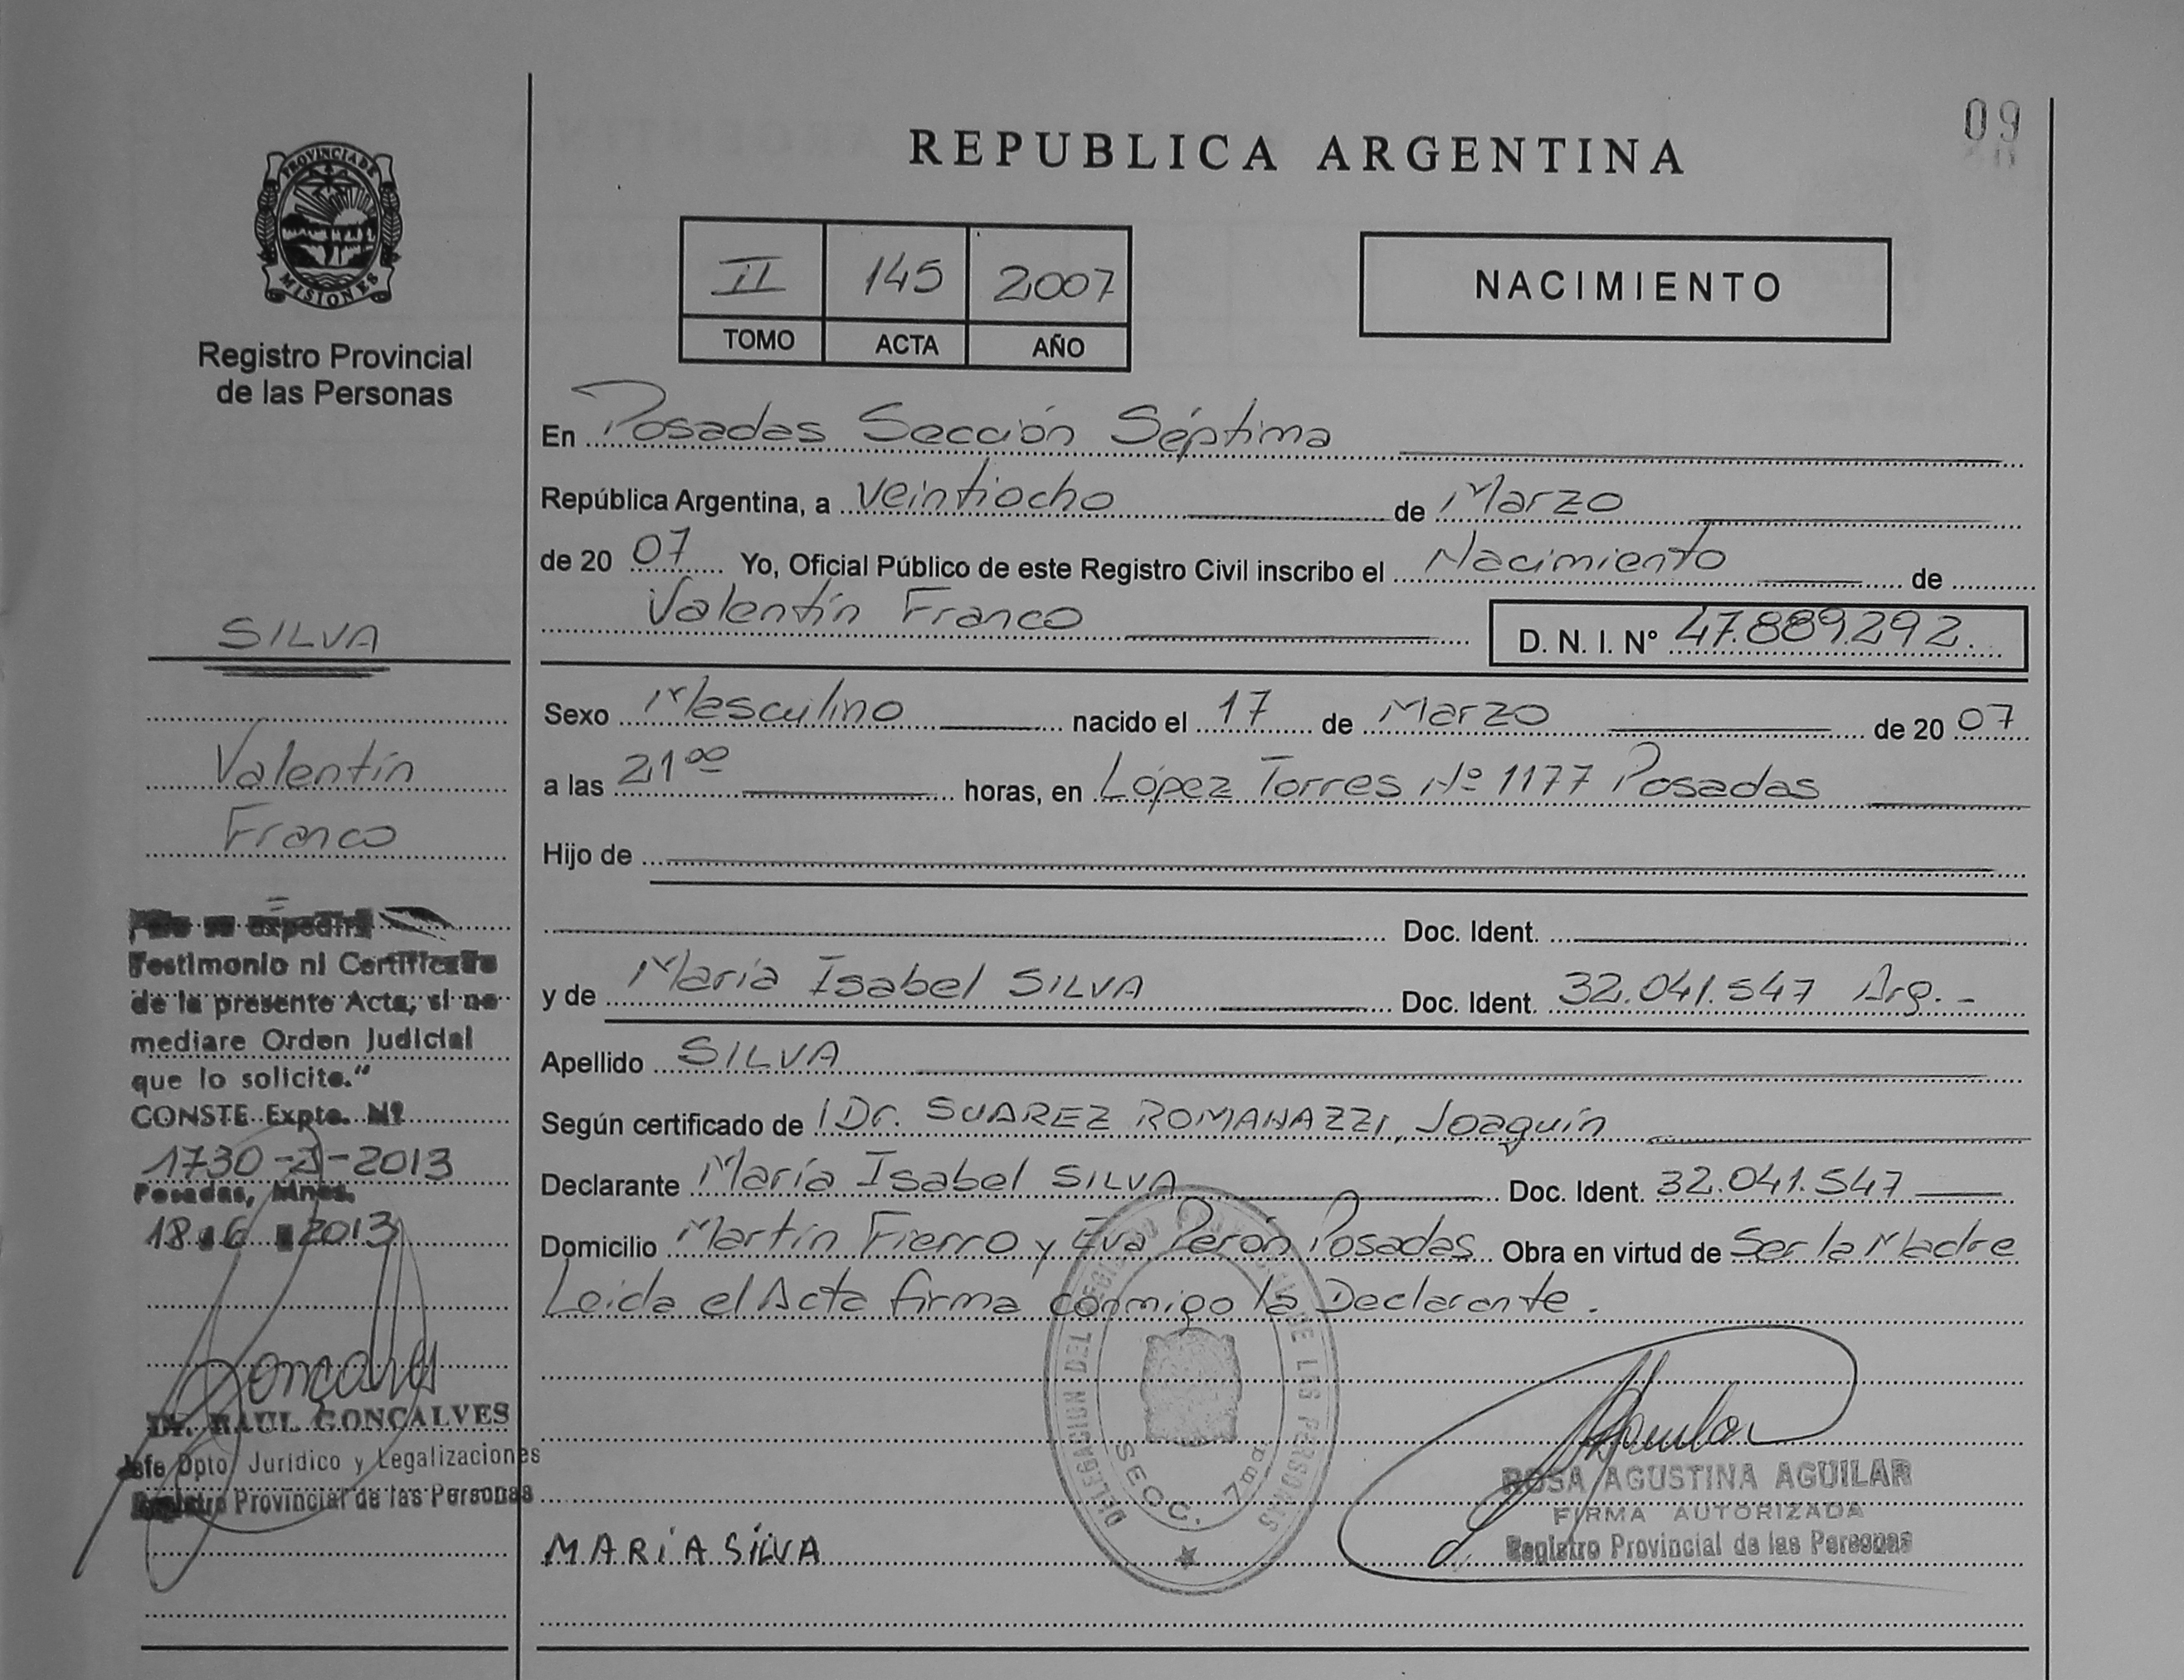 09
REPUBLICA ARGENTINA
PROVINCIA DE
MISIONES
Registro Provincial
de las Personas
II 145 2007
TOMO ACTA AÑO
NACIMIENTO
En Posadas Sección Séptima
República Argentina, a veintiocho de Marzo
de 20 07 Yo, Oficial Público de este Registro Civil inscribo el Nacimiento de
Valentín Franco D. N. I. Nº 47.889.292.
Sexo Masculino nacido el 17 de Marzo de 20 07
a las 21 00 horas, en López Torres Nº 1177 Posadas
Hijo de
Doc. Ident.
y de María Isabel SILVA Doc. Ident. 32.041.547 Arg. -
Apellido SILVA
Según certificado de Dr. SUAREZ ROMANAZZI, Joaquín
Declarante María Isabel SILVA Doc. Ident. 32.041.547
Domicilio Martín Fierro y Eva Perón Posadas Obra en virtud de Ser la Madre
Leida el Acta firma conmigo la Declarante.
SILVA
Valentín
Franco
se expedirá
Testimonio ni Certificado
de la presente Acta, si no
mediare Orden Judicial
que lo solicite."
CONSTE Expte. Nº
1730 - - 2013
Posadas, Mnes.
18 6 2013
Goncalves
Dr. RAUL GONCALVES
Jefe Dpto Jurídico y Legalizaciones
Registro Provincial de las Personas
DELEGACION DEL REGISTRO PROVINCIAL DE LAS PERSONAS
SECC. 7ma
Aguilar
ROSA AGUSTINA AGUILAR
FIRMA AUTORIZADA
Registro Provincial de las Personas
MARIA SILVA